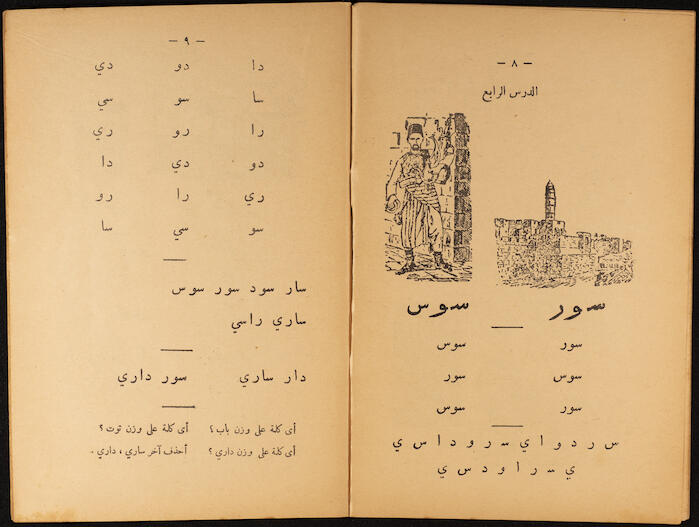 — ٨ —
الدرس الرابع
سور سوس
سور سوس
سوس سور
سور سوس
س ر د و ا ي س ر و د ا س ي
ي س ر ا و د س ي
— ٩ —
دا دو دي
سا سو سي
را رو ري
دو دي دا
ري را رو
سو سي سا
سار سود سور سوس
ساري راسي
دار ساري سور داري
أى كلة على وزن باب ؟ أى كلة على وزن توت ؟
أى كلة على وزن داري ؟ أحذف آخر ساري ، داري .